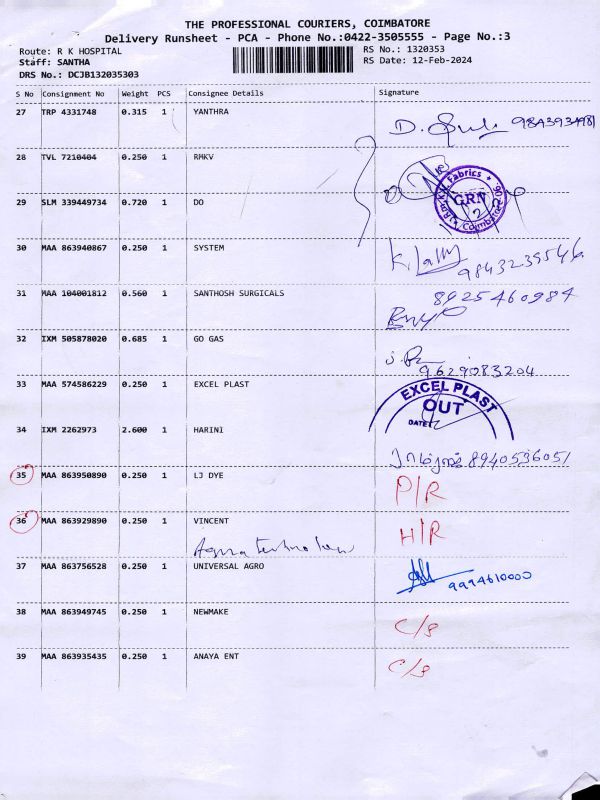 THE PROFESSIONAL COURIERS, COIMBATORE
Delivery Runsheet - PCA - Phone No.:0422-3505555 - Page No.:3
Route: R K HOSPITAL RS No.: 1320353
Staff: SANTHA RS Date: 12-Feb-2024
DRS No.: DCJB132035303
S No Consignment No Weight PCS Consignee Details Signature
27 TRP 4331748 0.315 1 YANTHRA
28 TVL 7210404 0.250 1 RMKV
Fabrics
GRN
Coimbatore
29 SLM 339449734 0.720 1 DO
30 MAA 863940867 0.250 1 SYSTEM
9843239546
31 MAA 104001812 0.560 1 SANTHOSH SURGICALS 8925460984
32 IXM 505878020 0.685 1 GO GAS
9629083204
33 MAA 574586229 0.250 1 EXCEL PLAST
EXCEL PLAST
OUT
DATE:
34 IXM 2262973 2.600 1 HARINI
8940536051
35 MAA 863950890 0.250 1 LJ DYE P/R
36 MAA 863929890 0.250 1 VINCENT H/R
37 MAA 863756528 0.250 1 UNIVERSAL AGRO 9994610000
38 MAA 863949745 0.250 1 NEWMAKE C/s
39 MAA 863935435 0.250 1 ANAYA ENT C/s